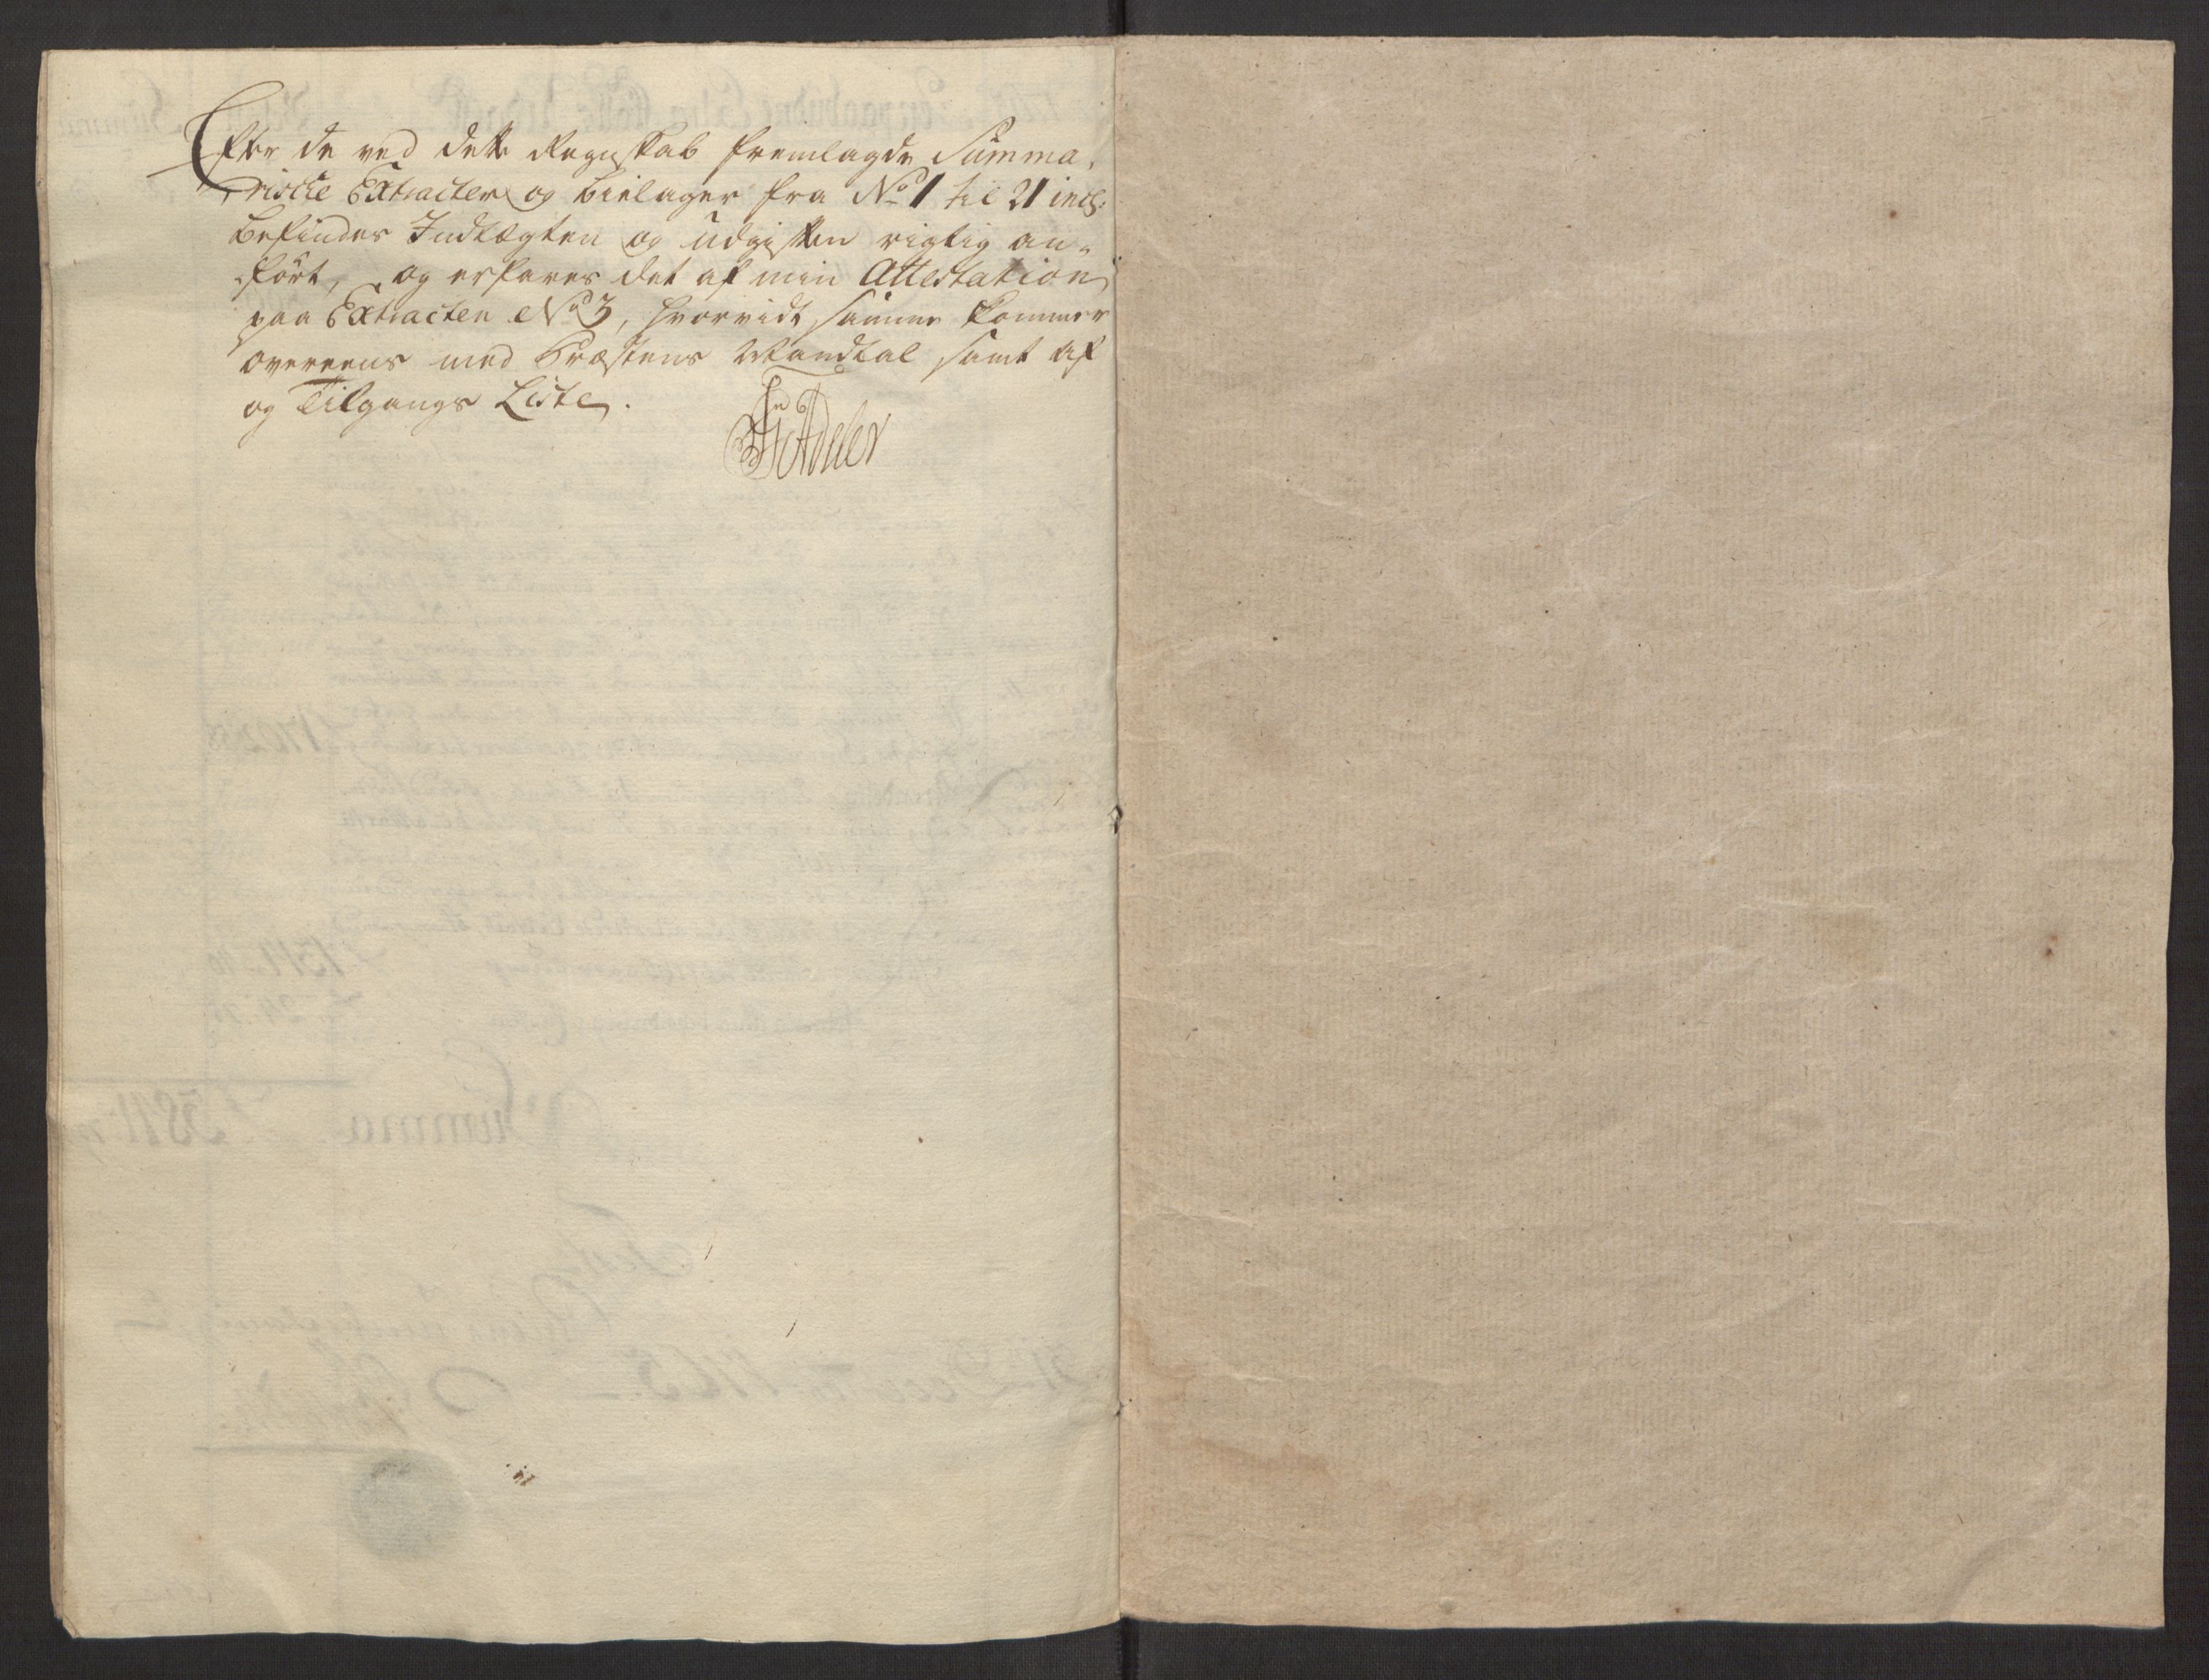 Efter de ved dette Regnskab fremlagde Summa,
rische Extracter og bielager fra No 1 til 21 incl:
befindes Indtægten og udgiften rigtig an-
ført, og erfares det af min Attestation
paa Extracten No 3, hvorvidt samme kommer
overeens med Præstens Mandtal samt af
og Tilgangs Liste.
Adeler